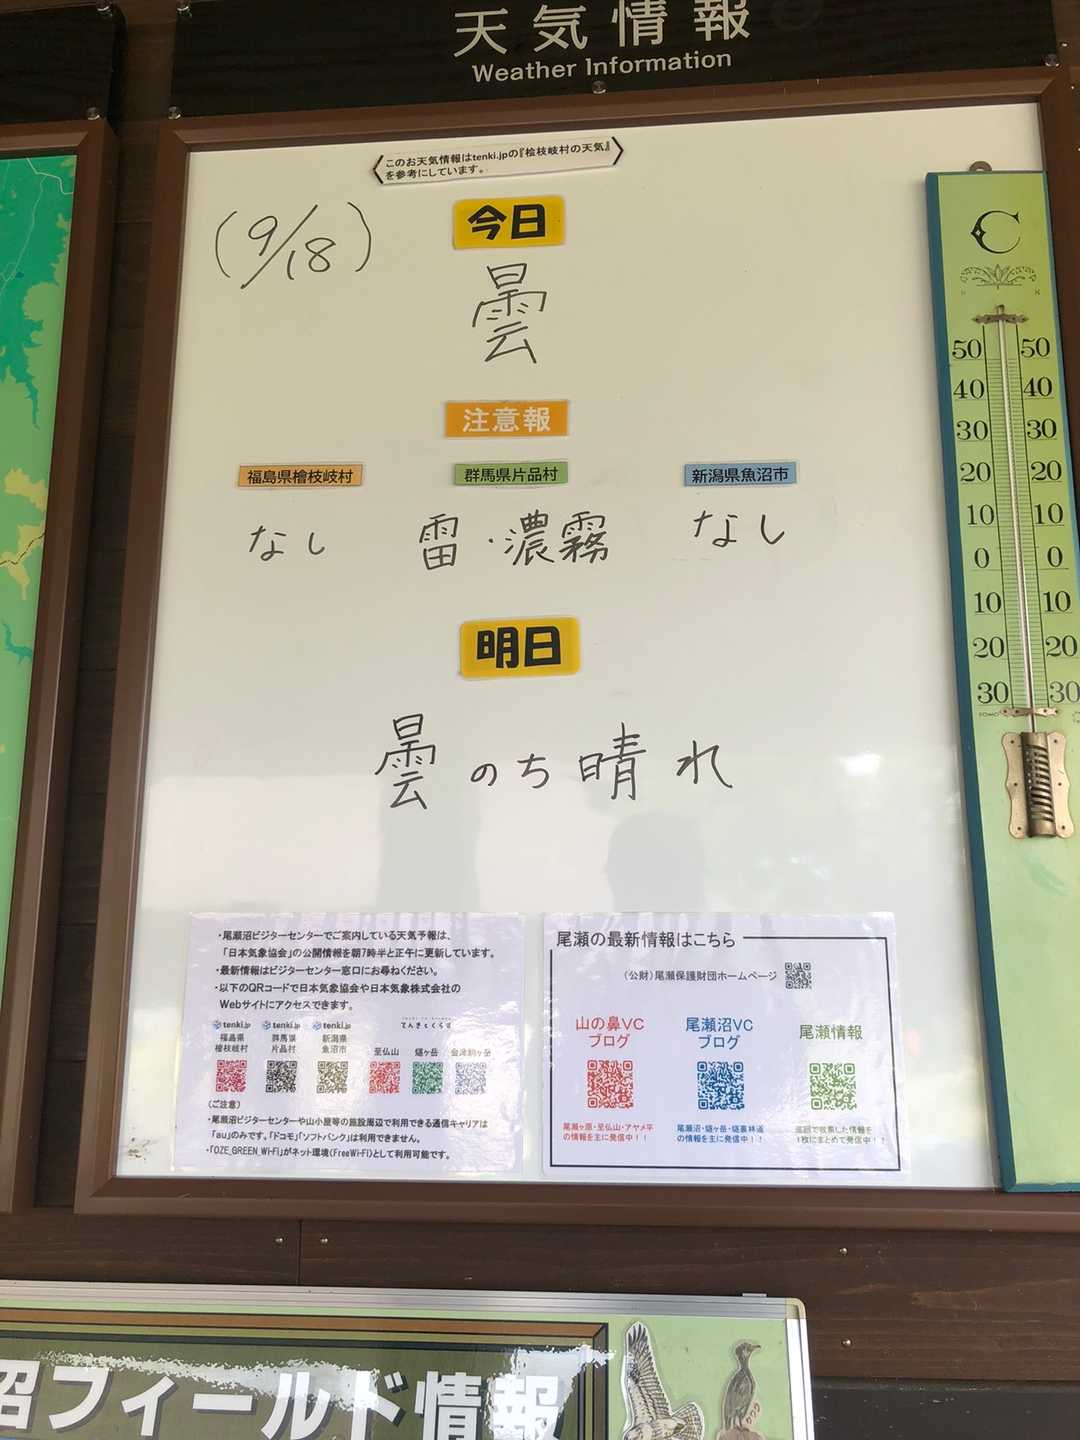 天気情報
Weather Information
このお天気情報はtenki.jpの『桧枝岐村の天気』
を参考にしています。
(9/18)
今日
曇
注意報
福島県檜枝岐村
群馬県片品村
新潟県魚沼市
なし
雷・濃霧
なし
明日
曇のち晴れ
C
50 50
40 40
30 30
20 20
10 10
0 0
10 10
20 20
30 30
・尾瀬沼ビジターセンターでご案内している天気予報は、
「日本気象協会」の公開情報を朝7時半と正午に更新しています。
・最新情報はビジターセンター窓口にお尋ねください。
・以下のQRコードで日本気象協会や日本気象株式会社の
Webサイトにアクセスできます。
tenki.jp tenki.jp tenki.jp てんきとくらす
福島県
檜枝岐村
群馬県
片品村
新潟県
魚沼市
至仏山
燧ヶ岳
会津駒ヶ岳
(ご注意)
・尾瀬沼ビジターセンターや山小屋等の施設周辺で利用できる通信キャリアは
「au」のみです。「ドコモ」「ソフトバンク」は利用できません。
・「OZE_GREEN_Wi-Fi」がネット環境(FreeWi-Fi)として利用可能です。
尾瀬の最新情報はこちら
(公財)尾瀬保護財団ホームページ
山の鼻VC
ブログ
尾瀬沼VC
ブログ
尾瀬情報
尾瀬ヶ原・至仏山・アヤメ平
の情報を主に発信中！！
尾瀬沼・燧ヶ岳・燧裏林道
の情報を主に発信中！！
巡回で収集した情報を
1枚にまとめて発信中！！
沼フィールド情報